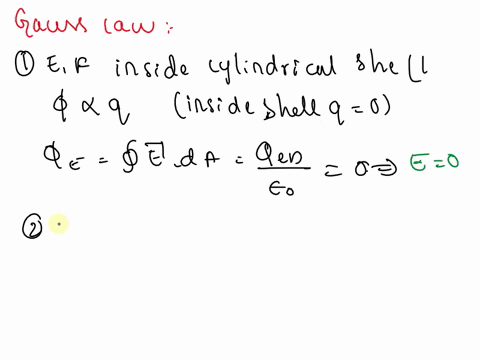 Gauss law:
① E.F inside cylindrical shell
ϕ ∝ q (inside shell q = 0)
ϕ_E = ∮E⃗.dA = Q_en/ε₀ = 0 ⇒ E = 0
②